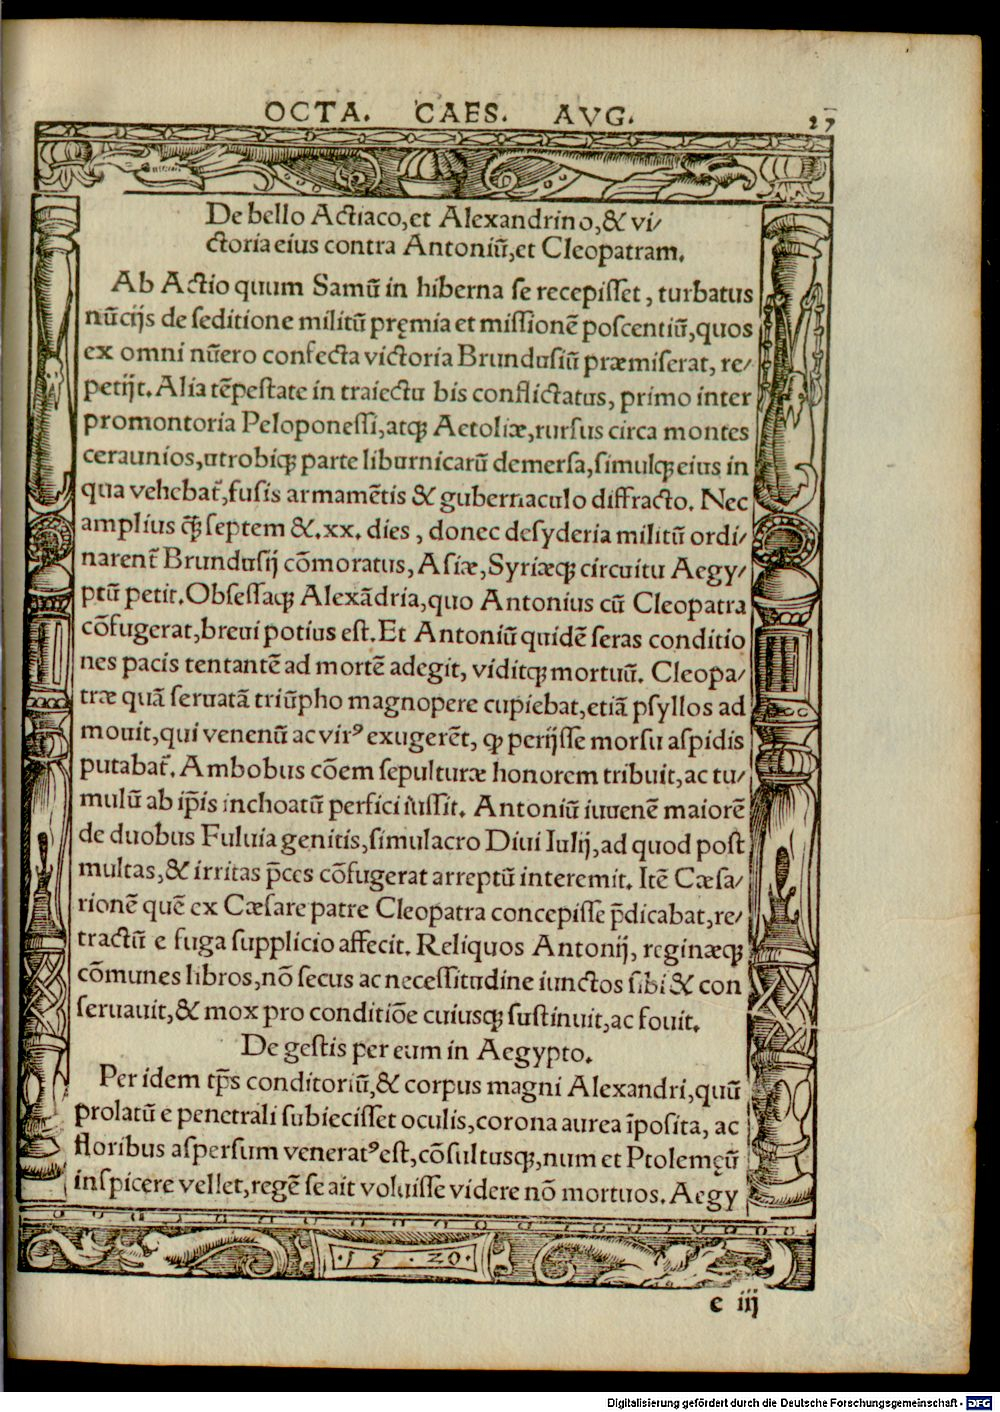 OCTA. CAES. AVG. 27
De bello Actiaco,et Alexandrino,& vi/
ctoria eius contra Antoniũ,et Cleopatram.
Ab Actio quum Samũ in hiberna se recepisset, turbatus
nũcijs de seditione militũ pręmia et missionẽ poscentiũ,quos
ex omni nũero confecta victoria Brundusiũ præmiserat, re/
petijt. Alia tẽpestate in traiectu bis conflictatus, primo inter
promontoria Peloponessi,atqꝫ Aetoliæ,rursus circa montes
ceraunios,utrobiqꝫ parte liburnicarũ demersa,simulqꝫ eius in
qua vehebat᷑,fusis armamẽtis & gubernaculo diffracto. Nec
amplius q̃ꝫ septem &.xx. dies, donec desyderia militũ ordi/
narent᷑ Brundusij cõmoratus, Asiæ, Syriæqꝫ circuitu Aegy/
ptũ petit. Obsessaqꝫ Alexãdria,quo Antonius cũ Cleopatra
cõfugerat,breui potius est. Et Antoniũ quidẽ seras conditio
nes pacis tentantẽ ad mortẽ adegit, viditqꝫ mortuũ. Cleopa/
træ quã seruatã triũpho magnopere cupiebat,etiã psyllos ad
mouit,qui venenũ ac virꝰ exugerẽt, ꝙ perijsse morsu aspidis
putabat᷑. Ambobus cõem sepulturæ honorem tribuit,ac tu/
mulũ ab ip̃is inchoatũ perfici iussit. Antoniũ iuuenẽ maiorẽ
de duobus Fuluia genitis,simulacro Diui Iulij,ad quod post
multas,& irritas p̃ces cõfugerat arreptũ interemit. Itẽ Cæsa/
rionẽ quẽ ex Cæsare patre Cleopatra concepisse p̃dicabat,re/
tractũ e fuga supplicio affecit. Reliquos Antonij, reginæqꝫ
cõmunes libros,nõ secus ac necessitudine iunctos sibi & con
seruauit,& mox pro conditiõe cuiusqꝫ sustinuit,ac fouit.
De gestis per eum in Aegypto.
Per idem tp̃s conditoriũ,& corpus magni Alexandri,quũ
prolatũ e penetrali subiecisset oculis,corona aurea ĩposita, ac
floribus aspersum veneratꝰ est,cõsultusqꝫ,num et Ptolemęũ
inspicere vellet,regẽ se ait voluisse videre nõ mortuos. Aegy
.15.20.
c iij
Digitalisierung gefördert durch die Deutsche Forschungsgemeinschaft - DFG